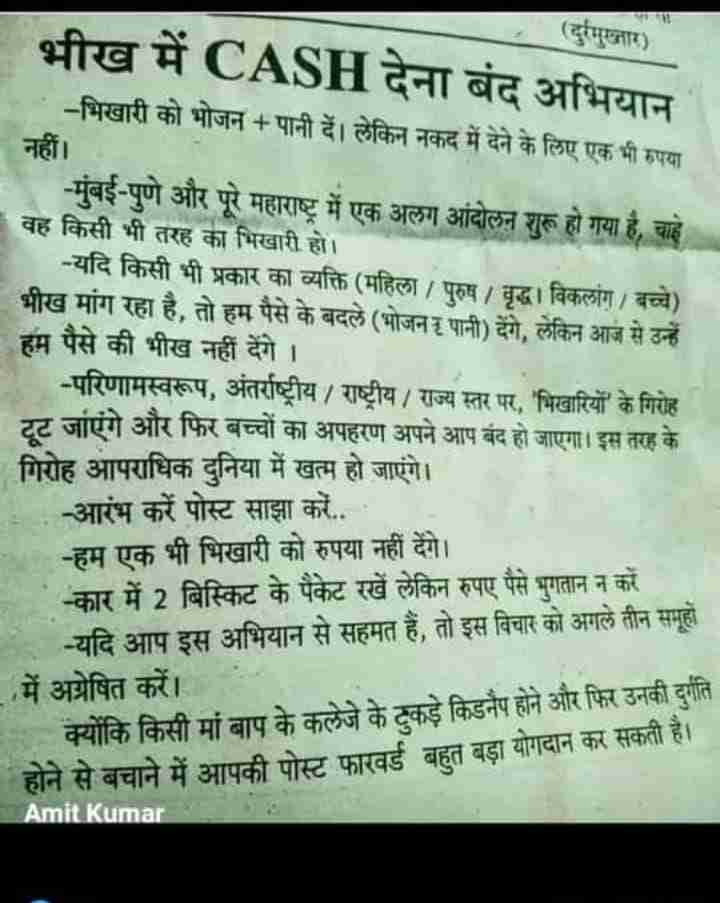 (दुर्रमुख्तार)
भीख में CASH देना बंद अभियान
–भिखारी को भोजन + पानी दें। लेकिन नकद में देने के लिए एक भी रुपया
नहीं।
-मुंबई-पुणे और पूरे महाराष्ट्र में एक अलग आंदोलन शुरू हो गया है, चाहे
वह किसी भी तरह का भिखारी हो।
-यदि किसी भी प्रकार का व्यक्ति (महिला / पुरुष / वृद्ध। विकलांग / बच्चे)
भीख मांग रहा है, तो हम पैसे के बदले (भोजन पानी) देंगे, लेकिन आज से उन्हें
हम पैसे की भीख नहीं देंगे ।
-परिणामस्वरूप, अंतर्राष्ट्रीय / राष्ट्रीय / राज्य स्तर पर, 'भिखारियों' के गिरोह
टूट जांएंगे और फिर बच्चों का अपहरण अपने आप बंद हो जाएगा। इस तरह के
गिरोह आपराधिक दुनिया में खत्म हो जाएंगे।
-आरंभ करें पोस्ट साझा करें..
-हम एक भी भिखारी को रुपया नहीं देंगे।
-कार में 2 बिस्किट के पैकेट रखें लेकिन रुपए पैसे भुगतान न करें
-यदि आप इस अभियान से सहमत हैं, तो इस विचार को अगले तीन समूहों
में अग्रेषित करें।
क्योंकि किसी मां बाप के कलेजे के टुकड़े किडनैप होने और फिर उनकी दुर्गति
होने से बचाने में आपकी पोस्ट फारवर्ड बहुत बड़ा योगदान कर सकती है।
Amit Kumar